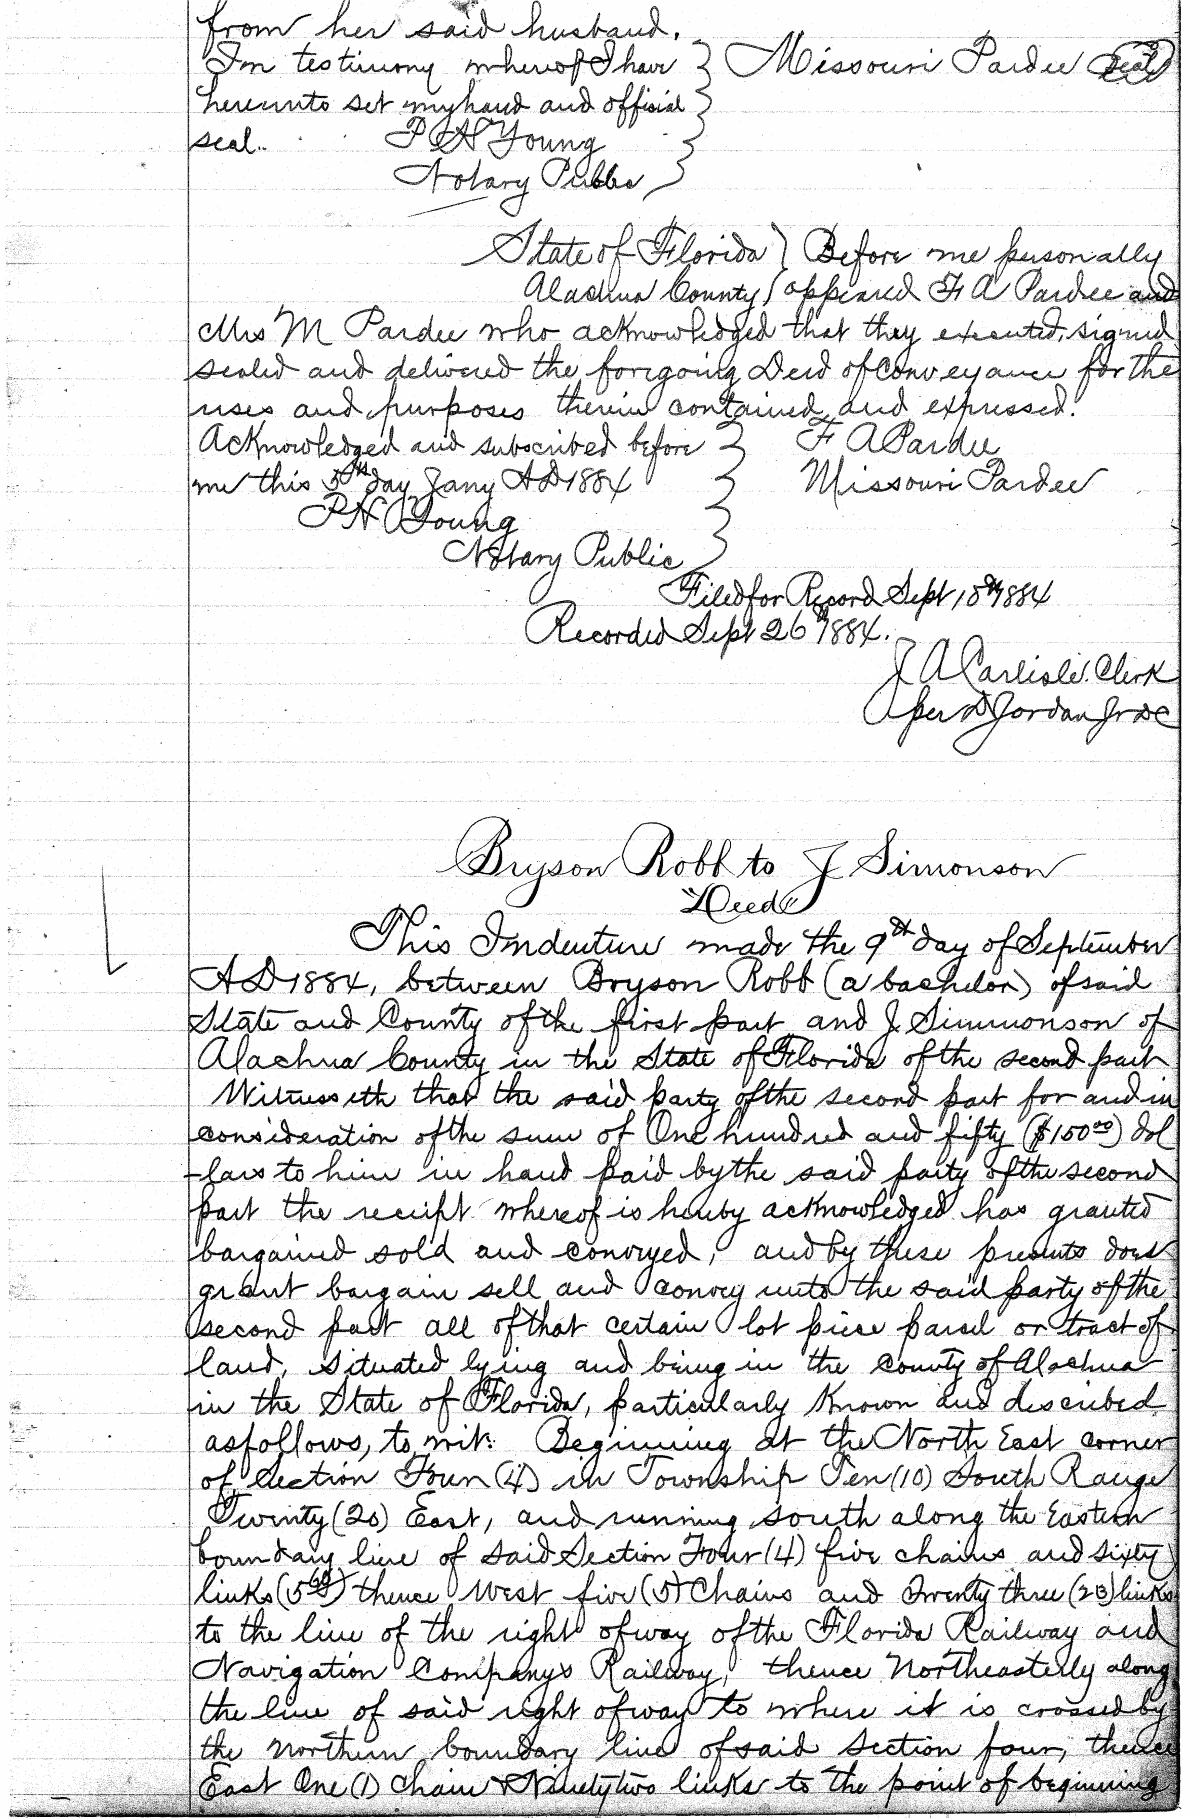 from her said husband.
In testimony whereof I have } Missouri Pardee seal
hereunto set my hand and official
seal. P H Young
Notary Public
State of Florida } Before me personally
Alachua County } appeared F A Pardee and
Mrs M Pardee who acknowledged that they executed, signed
sealed and delivered the foregoing Deed of Conveyance for the
uses and purposes therein contained and expressed.
Acknowledged and subscribed before } F A Pardee
me this 5th day Jany AD 1884 Missouri Pardee
P H Young
Notary Public
Filed for Record Sept 18th 1884
Recorded Sept 26th 1884.
J A Carlisle. Clerk
per D Jordan Jr DC
Bryson Robb to J Simonson
"Deed"
This Indenture made the 9th day of September
AD 1884, between Bryson Robb (a bachelor) of said
State and County of the first part and J. Simmonson of
Alachua County in the State of Florida of the second part
Witnesseth that the said party of the second part for and in
consideration of the sum of One hundred and fifty ($150.00) dol
-lars to him in hand paid by the said party of the second
part the receipt whereof is hereby acknowledged has granted
bargained sold and conveyed, and by these presents does
grant bargain sell and convey unto the said party of the
second part all of that certain lot piece parcel or tract of
land, situated lying and being in the county of Alachua
in the State of Florida, particularly known and described
as follows, to wit: Beginning at the North East corner
of Section Four (4) in Township Ten (10) South Range
Twenty (20) East, and running south along the Eastern
boundary line of said Section Four (4) five chains and sixty
links (5 60) thence West five (5) Chains and Twenty three (23) links
to the line of the right of way of the Florida Railway and
Navigation Company's Railway, thence Northeasterly along
the line of said right of way to where it is crossed by
the northern boundary line of said section four, thence
East One (1) Chain & Ninety two links to the point of beginning